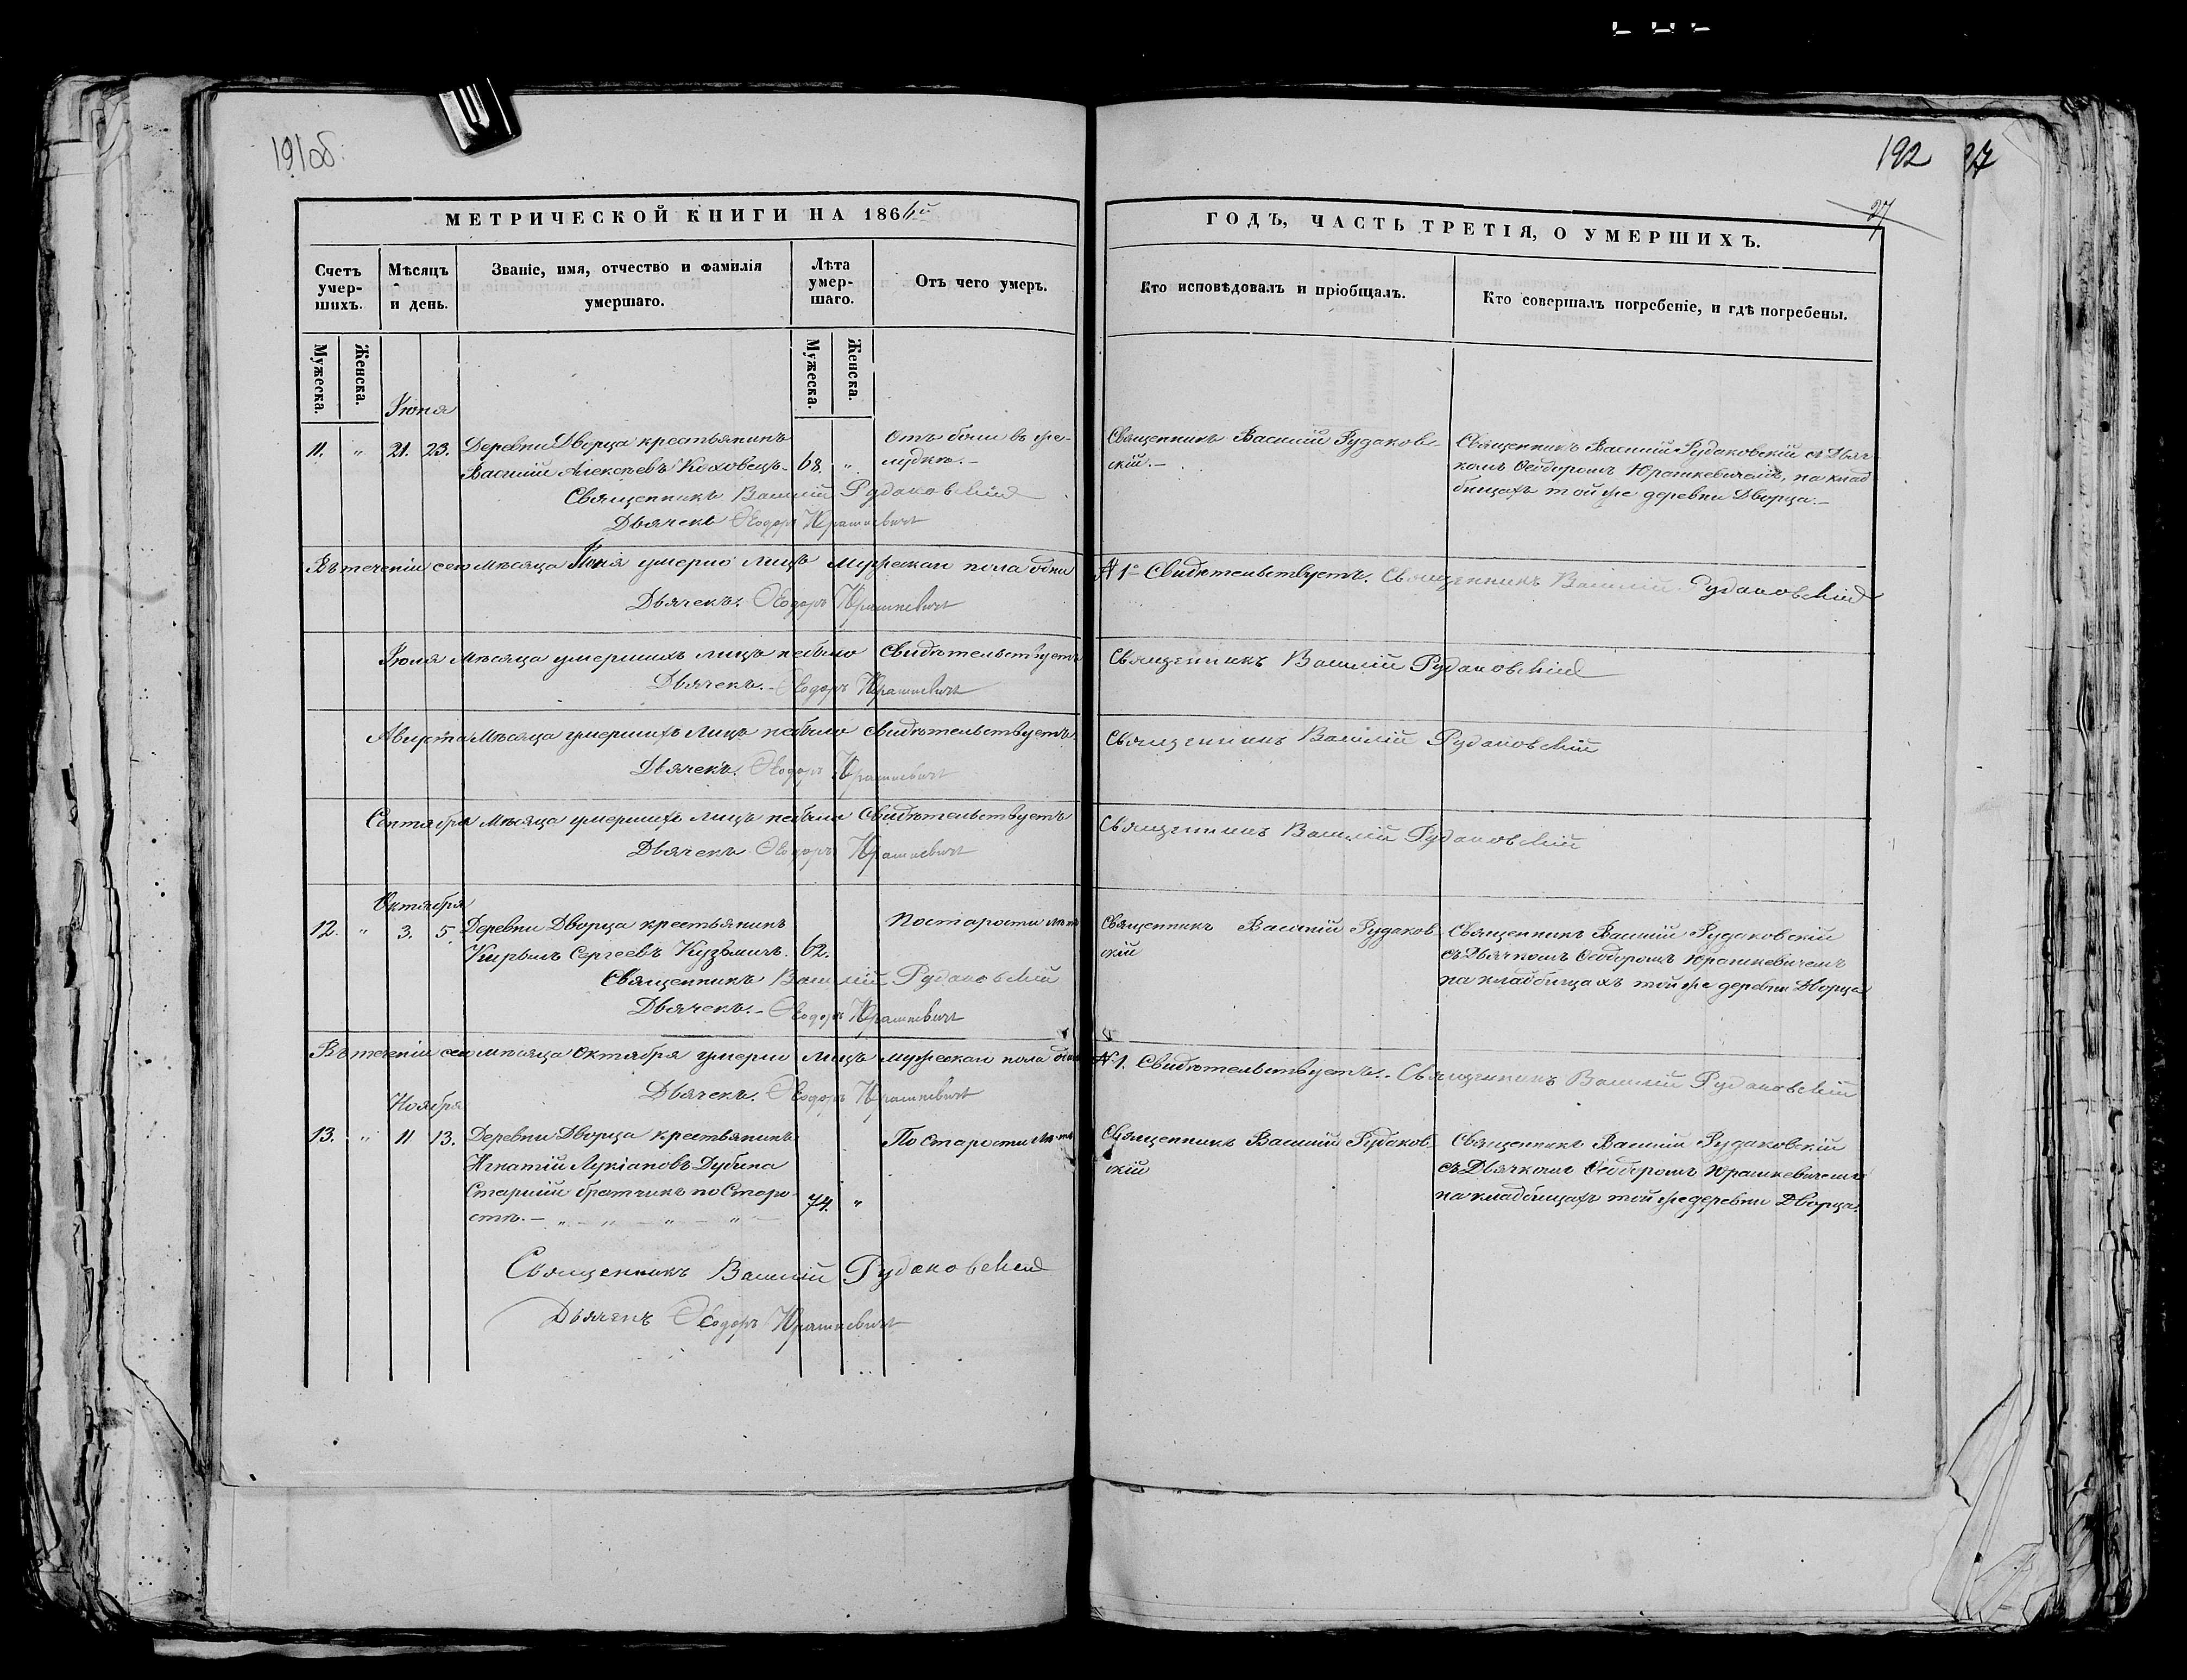 191об.
МЕТРИЧЕСКОЙ КНИГИ НА 1866й
Счетъ умер-шихъ.
Мѣсяцъ и день.
Званіе, имя, отчество и фамилія умершаго.
Лѣта умер-шаго.
Отъ чего умеръ.
Мужеска.
Женска.
Мужеска.
Женска.
Іюня
11. " 21. 23. Деревни Дворца крестьянинъ Отъ боли въ же-
Василій Алексѣевъ Каховецъ. 68. " лудкѣ.
Священникъ Василій Рудаковскій
Дьячекъ Ѳеодоръ Юрашкевичъ
Въ теченіи сего мѣсяца Іюня умерло лицъ мужескаго пола одно
Дьячекъ. Ѳеодоръ Юрашкевичъ
Іюля мѣсяца умершихъ лицъ небыло Свидѣтельствуетъ
Дьячекъ. Ѳеодоръ Юрашкевичъ
Августа мѣсяца умершихъ лицъ небыло свидѣтельствуетъ
Дьячекъ. Ѳеодоръ Юрашкевичъ
Сентября мѣсяца умершихъ лицъ небыло Свидѣтельствуетъ
Дьячекъ Ѳеодоръ Юрашкевичъ
Октября
12. " 3. 5. Деревни Дворца крестьянинъ По старости лѣтъ
Кирылъ Сергеевъ Кузьмичъ. 62.
Священникъ Василій Рудаковскій
Дьячекъ. Ѳеодоръ Юрашкевичъ
Въ теченіи сего мѣсяца Октября умерло лицъ мужескаго пола одно
Дьячекъ. Ѳеодоръ Юрашкевичъ
Ноября
13. " 11 13. Деревни Дворца крестьянинъ По Старости лѣтъ
Игнатій Лукіановъ Дубина
Старшій братчикъ по Старо-
стѣ. 74. "
Священникъ Василій Рудаковскій
Дьячекъ Ѳеодоръ Юрашкевичъ
192
27
27
ГОДЪ, ЧАСТЬ ТРЕТІЯ, О УМЕРШИХЪ.
Кто исповѣдовалъ и пріобщалъ.
Кто совершалъ погребеніе, и гдѣ погребены.
Священникъ Василій Рудаков-
скій.
Священникъ Василій Рудаковскій съ Дьяч-
комъ Ѳеодоромъ Юрашкевичемъ, на клад-
бищахъ той же деревни Дворца.
№ 1. Свидѣтельствуетъ. Священникъ Василій Рудаковскій
Священникъ Василій Рудаковскій
Священникъ Василій Рудаковскій
Священникъ Василій Рудаковскій
Священникъ Василій Рудаков-
скій
Священникъ Василій Рудаковскій
съ Дьячкомъ Ѳеодоромъ Юрашкевичемъ
на кладбищахъ той же деревни Дворца
№ 1. Свидѣтельствуетъ. Священникъ Василій Рудаковскій
Священникъ Василій Рудаков-
скій
Священникъ Василій Рудаковскій
съ Дьячкомъ Ѳеодоромъ Юрашкевичемъ
на кладбищахъ той же деревни Дворца.